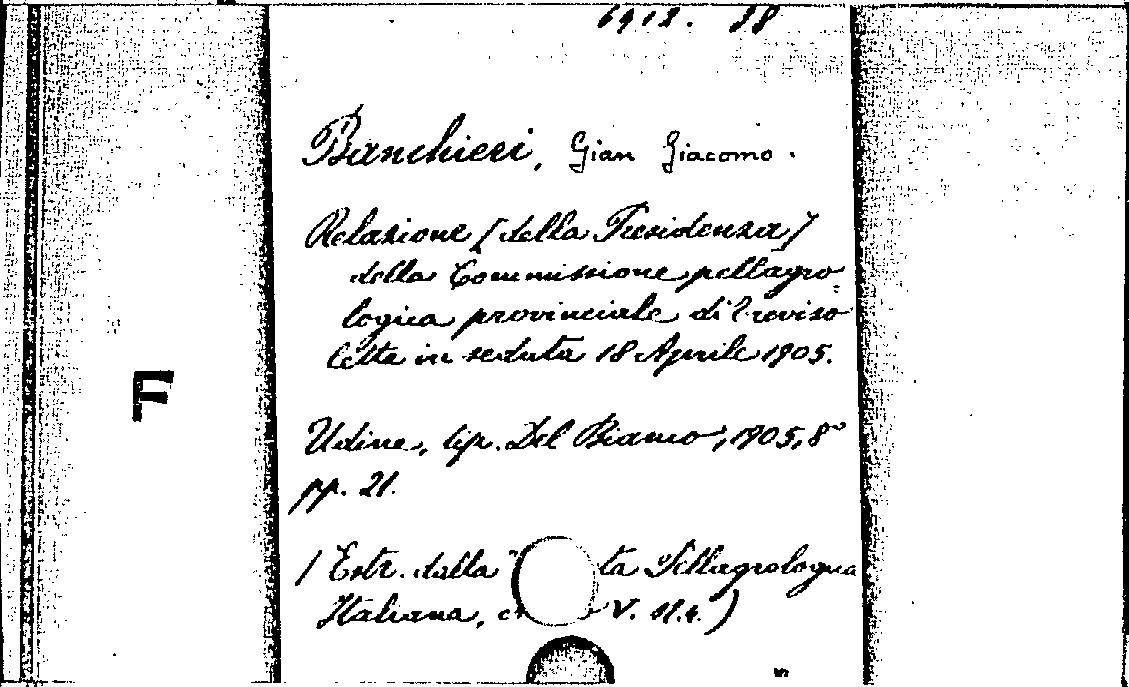 6912. 38
Banchieri, Gian Giacomo.
Relazione [della Presidenza]
della Commissione pellagro-
logica provinciale di Treviso
letta in seduta 18 Aprile 1905.
F
Udine, tip. Del Bianco, 1905, 8°
pp. 21.
(Estr. dalla ta Pellagrologica
Italiana, V. N.4.)